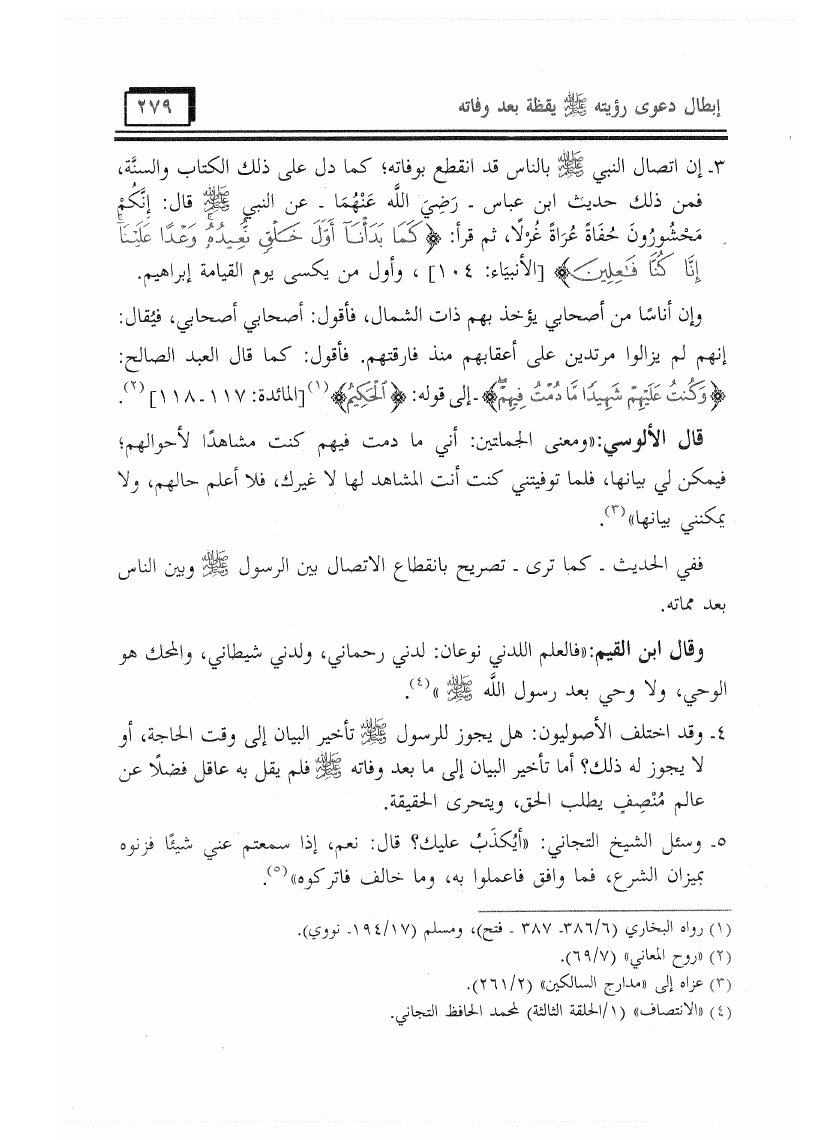 إبطال دعوى رؤيته ﷺ يقظة بعد وفاته
٢٧٩
٣ـ إن اتصال النبي ﷺ بالناس قد انقطع بوفاته؛ كما دل على ذلك الكتاب والسنَّة،
فمن ذلك حديث ابن عباس ـ رَضِيَ اللَّه عَنْهُمَا ـ عن النبي ﷺ قال: إِنَّكُمْ
مَحْشُورُونَ حُفَاةً عُرَاةً غُرْلًا، ثم قرأ: ﴿كَمَا بَدَأْنَآ أَوَّلَ خَلْقٍ نُّعِيدُهُۥ وَعْدًا عَلَيْنَآ
إِنَّا كُنَّا فَٰعِلِينَ﴾ [الأنبيَاء: ١٠٤] ، وأول من يكسى يوم القيامة إبراهيم.
وإن أناسًا من أصحابي يؤخذ بهم ذات الشمال، فأقول: أصحابي أصحابي، فيُقال:
إنهم لم يزالوا مرتدين على أعقابهم منذ فارقتهم. فأقول: كما قال العبد الصالح:
﴿وَكُنتُ عَلَيْهِمْ شَهِيدًا مَّا دُمْتُ فِيهِمْ﴾ـ إلى قوله: ﴿الْحَكِيمُ﴾(١)[المائدة: ١١٧ـ١١٨] (٢).
قال الألوسي:«ومعنى الجملتين: أني ما دمت فيهم كنت مشاهدًا لأحوالهم؛
فيمكن لي بيانها، فلما توفيتني كنت أنت المشاهد لها لا غيرك، فلا أعلم حالهم، ولا
يمكنني بيانها»(٣).
ففي الحديث ـ كما ترى ـ تصريح بانقطاع الاتصال بين الرسول ﷺ وبين الناس
بعد مماته.
وقال ابن القيم:«فالعلم اللدني نوعان: لدني رحماني، ولدني شيطاني، والمحك هو
الوحي، ولا وحي بعد رسول اللَّه ﷺ »(٤).
٤ـ وقد اختلف الأصوليون: هل يجوز للرسول ﷺ تأخير البيان إلى وقت الحاجة، أو
لا يجوز له ذلك؟ أما تأخير البيان إلى ما بعد وفاته ﷺ فلم يقل به عاقل فضلًا عن
عالم مُنْصِفٍ يطلب الحق، ويتحرى الحقيقة.
٥ـ وسئل الشيخ التجاني: «أيُكذَبُ عليك؟ قال: نعم، إذا سمعتم عني شيئًا فزنوه
بميزان الشرع، فما وافق فاعملوا به، وما خالف فاتركوه»(٥).
(١) رواه البخاري (٣٨٦/٦ـ ٣٨٧ ـ فتح)، ومسلم (١٩٤/١٧ـ نووي).
(٢) «روح المعاني» (٦٩/٧).
(٣) عزاه إلى «مدارج السالكين» (٢٦١/٢).
(٤) «الانتصاف» (١/الحلقة الثالثة) لمحمد الحافظ التجاني.